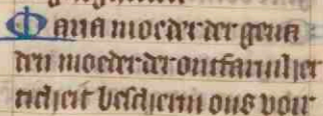 Maria moeder der gena
den moeder der ontfarmher
ticheit bescherm ons voir